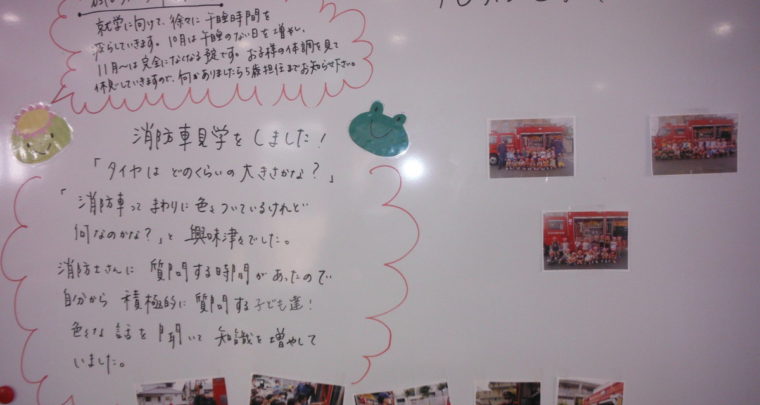 就学に向けて、徐々に午睡時間を
減らしていきます。10月は午睡のない日を増やし、
11月〜は完全になくなる予定です。お子様の体調を見て
休息していきますので、何かありましたら5歳担任までお知らせ下さい。
消防車見学をしました！
「タイヤは どのくらいの大きさかな？」
「消防車って まわりに色々ついているけれど
何なのかな？」と 興味津々でした。
消防士さんに 質問する時間があったので
自分から 積極的に 質問する子ども達！
色々な 話を 聞いて 知識を増やして
いました。